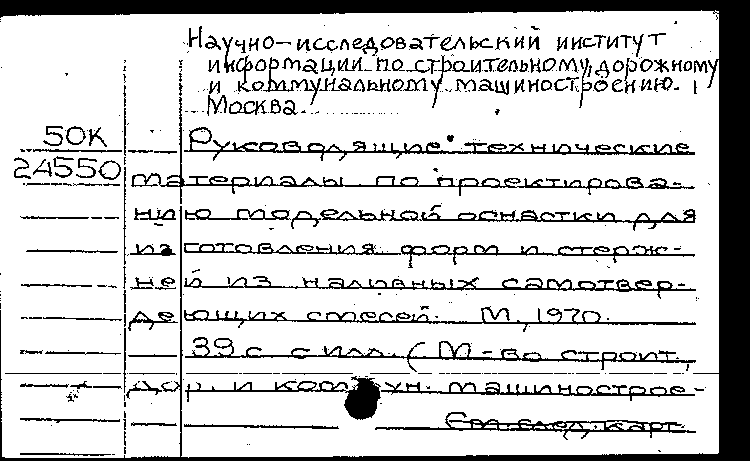 Научно-исследовательский институт
информации по строительному, дорожному
и коммунальному машиностроению.
Москва.
50К
24550
Руководящие технические
материалы по проектирова-
нию модельной оснастки для
изготовления форм и стерж-
ней из наливных самотвер-
деющих смесей. М., 1970.
39 с. с илл. (М-во строит.,
дор. и коммун. машинострое-
См. след. карт.